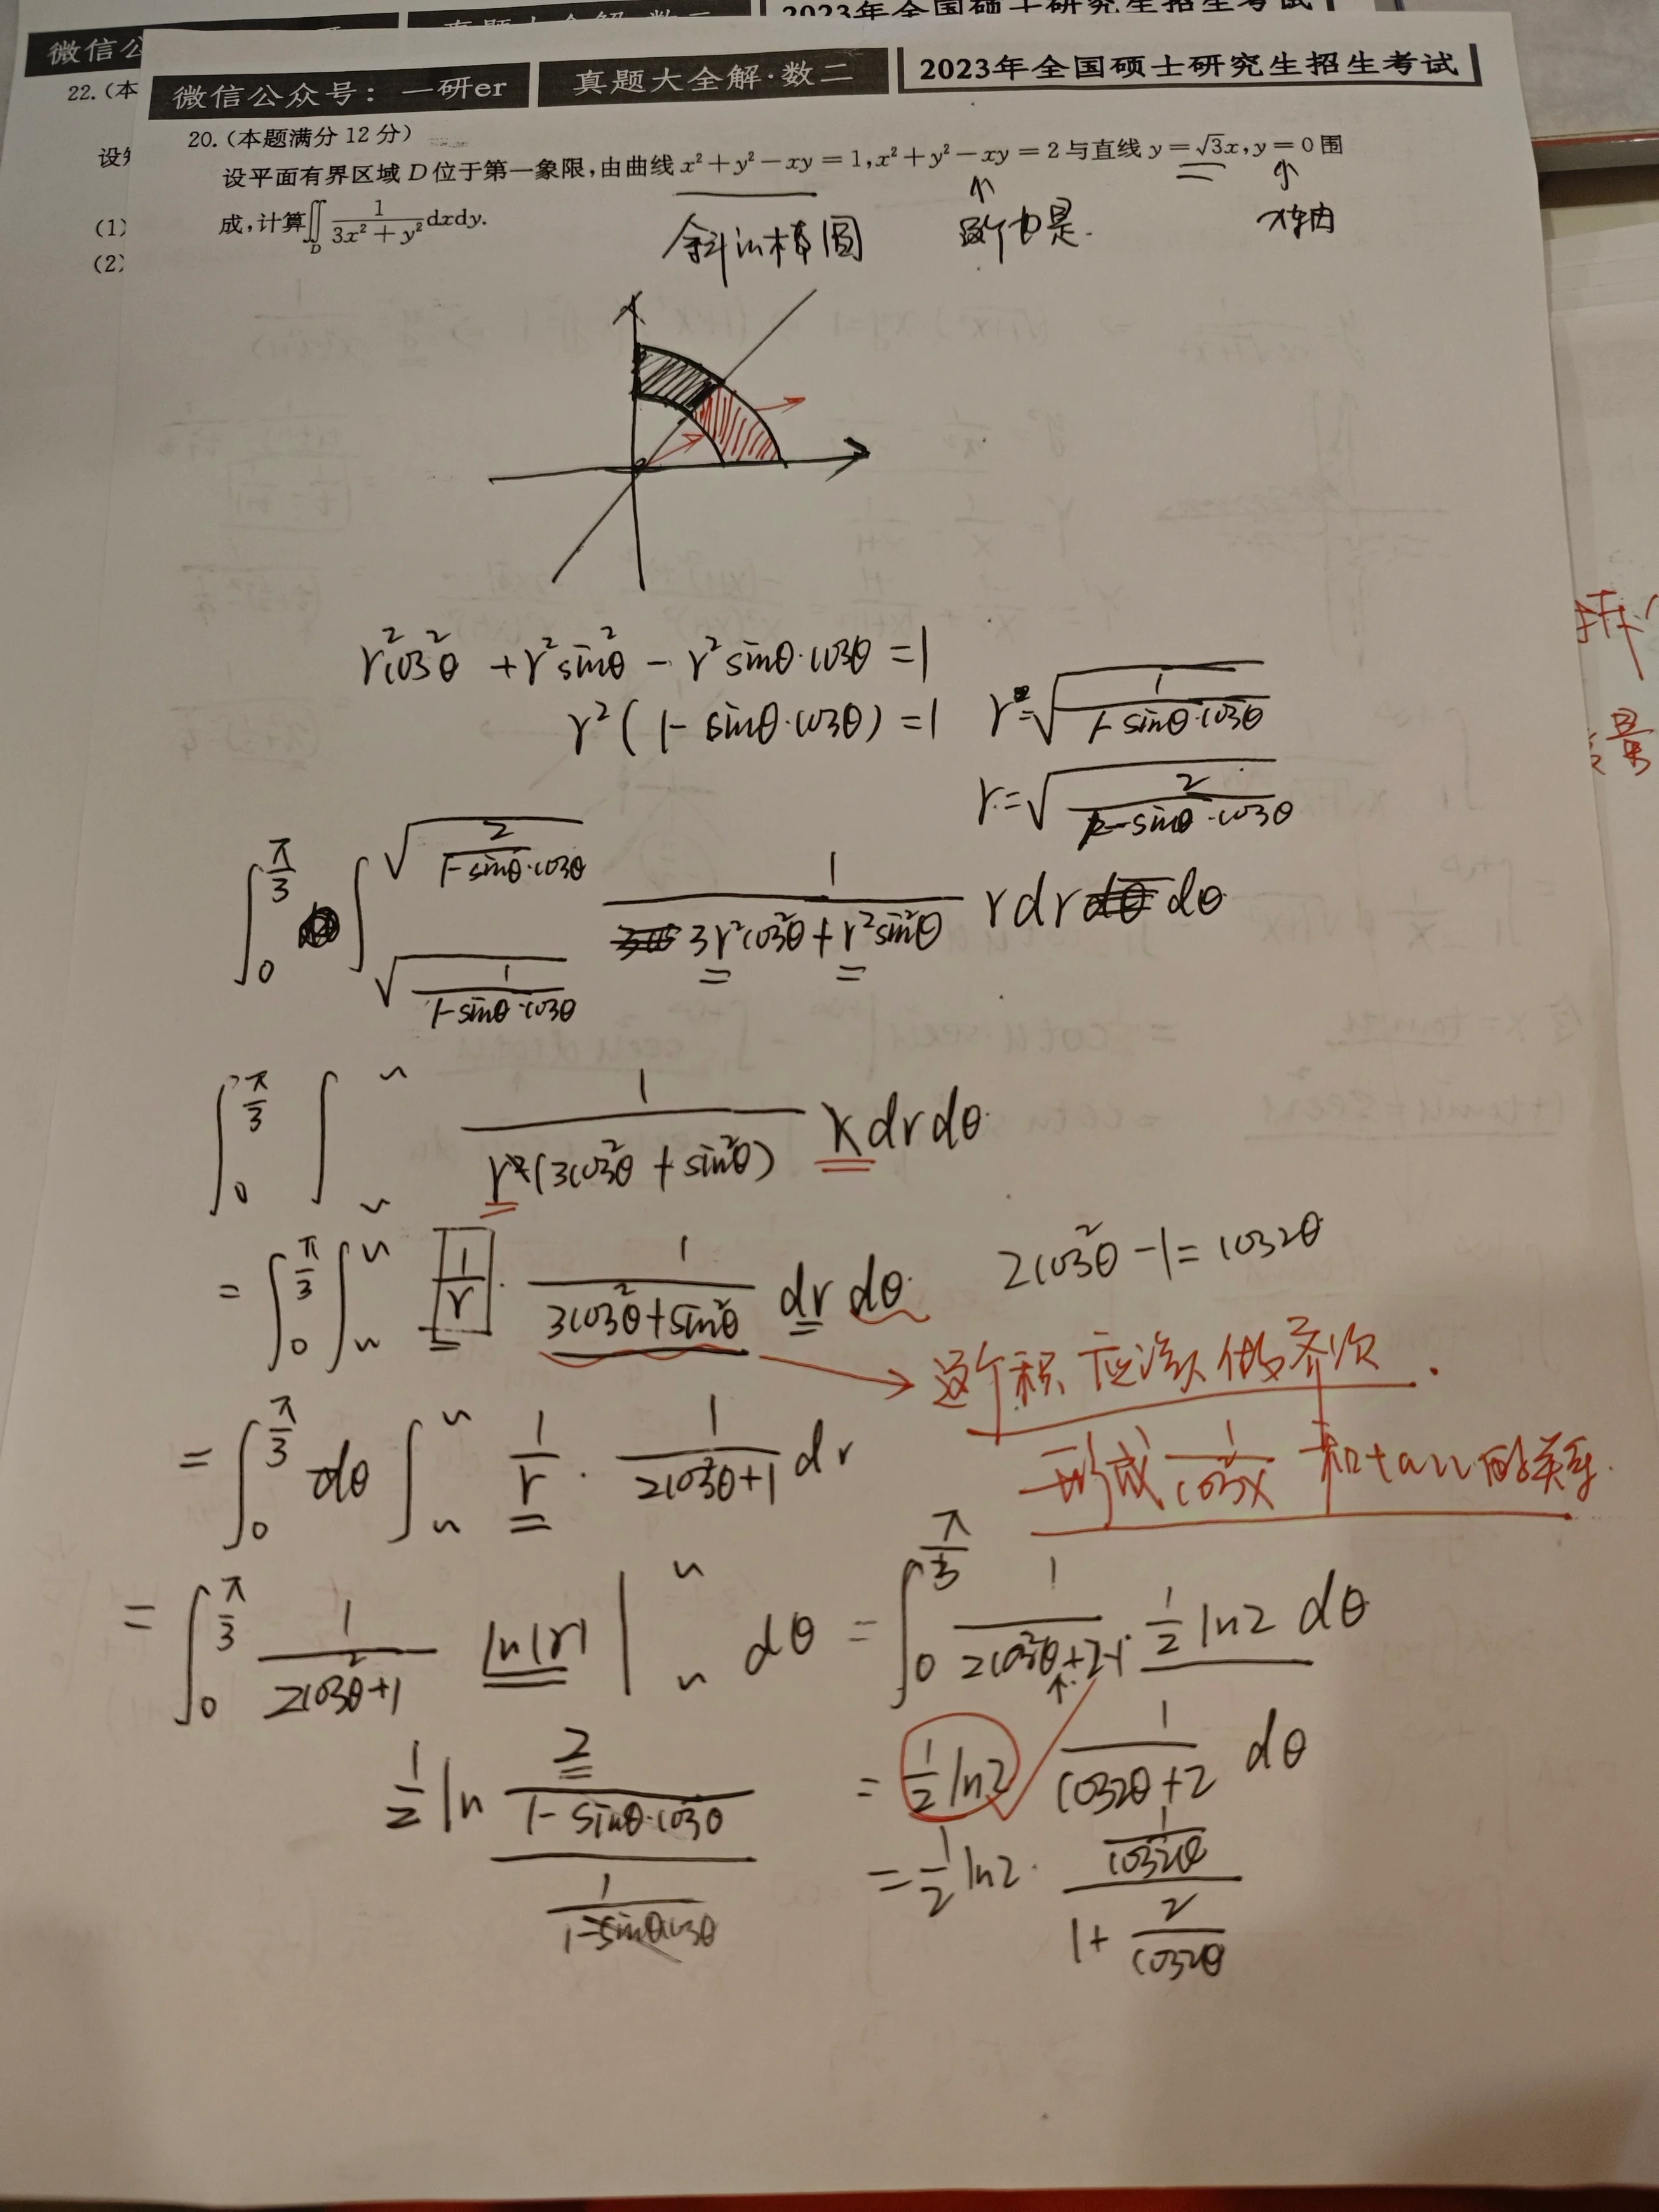 2023年全国硕士研究生招生考试
微信公
22.(本
(1)
(2)
微信公众号：一研er 真题大全解·数二 2023年全国硕士研究生招生考试
20.(本题满分 12 分)
设平面有界区域 D 位于第一象限,由曲线 x² + y² − xy = 1, x² + y² − xy = 2 与直线 y = √3x, y = 0 围
成,计算∬_D 1/(3x² + y²) dxdy.
斜的椭圆 这个也是. x轴
r²cos²θ + r²sin²θ − r²sinθ·cosθ = 1
r²(1 − sinθ·cosθ) = 1 r = √(1/(1 − sinθ·cosθ))
r = √(2/(1 − sinθ·cosθ))
∫_0^{π/3} ∫_{√(1/(1−sinθ·cosθ))}^{√(2/(1−sinθ·cosθ))} 1/(3r²cos²θ + r²sin²θ) r dr dθ
∫_0^{π/3} ∫_~^~ 1/(r²(3cos²θ + sin²θ)) r dr dθ
= ∫_0^{π/3} ∫_~^~ 1/r · 1/(3cos²θ + sin²θ) dr dθ 2cos²θ − 1 = cos2θ
这个积 应该做齐次.
= ∫_0^{π/3} dθ ∫_~^~ 1/r · 1/(2cos²θ + 1) dr
形成 1/cosx 和tanx的关系.
= ∫_0^{π/3} 1/(2cos²θ + 1) ln|r| |_~^~ dθ = ∫_0^{π/3} 1/(2cos²θ + 2 − 1) · 1/2 ln2 dθ
1/2 ln (2/(1 − sinθ·cosθ))/(1/(1 − sinθcosθ)) = 1/2 ln2 1/(cos2θ + 2) dθ
= 1/2 ln2 · (1/cos2θ)/(1 + 2/cos2θ)